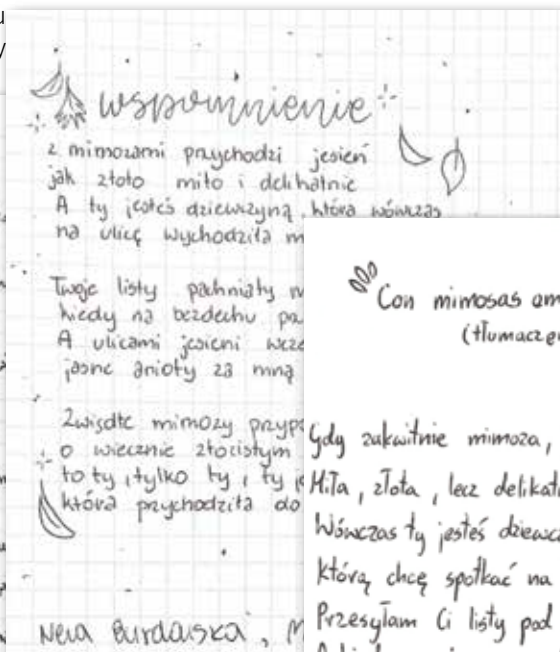 wspomnienie
z mimozami przychodzi jesień
jak złoto miło i delikatnie
A ty jesteś dziewczyną, która wówczas
na ulicę wychodziła m
Twoje listy pachniały
kiedy na bezdechu pa
A ulicami jesieni
jasne anioły za mną
Zwiędłe mimozy
o wiecznie złocistym
to ty, tylko ty, ty
która przychodziła do
Con mimosas
Gdy zakwitnie mimoza,
Miła, złota, lecz
Wówczas ty jesteś
Którą chcę spotkać na
Przesyłam Ci listy pod